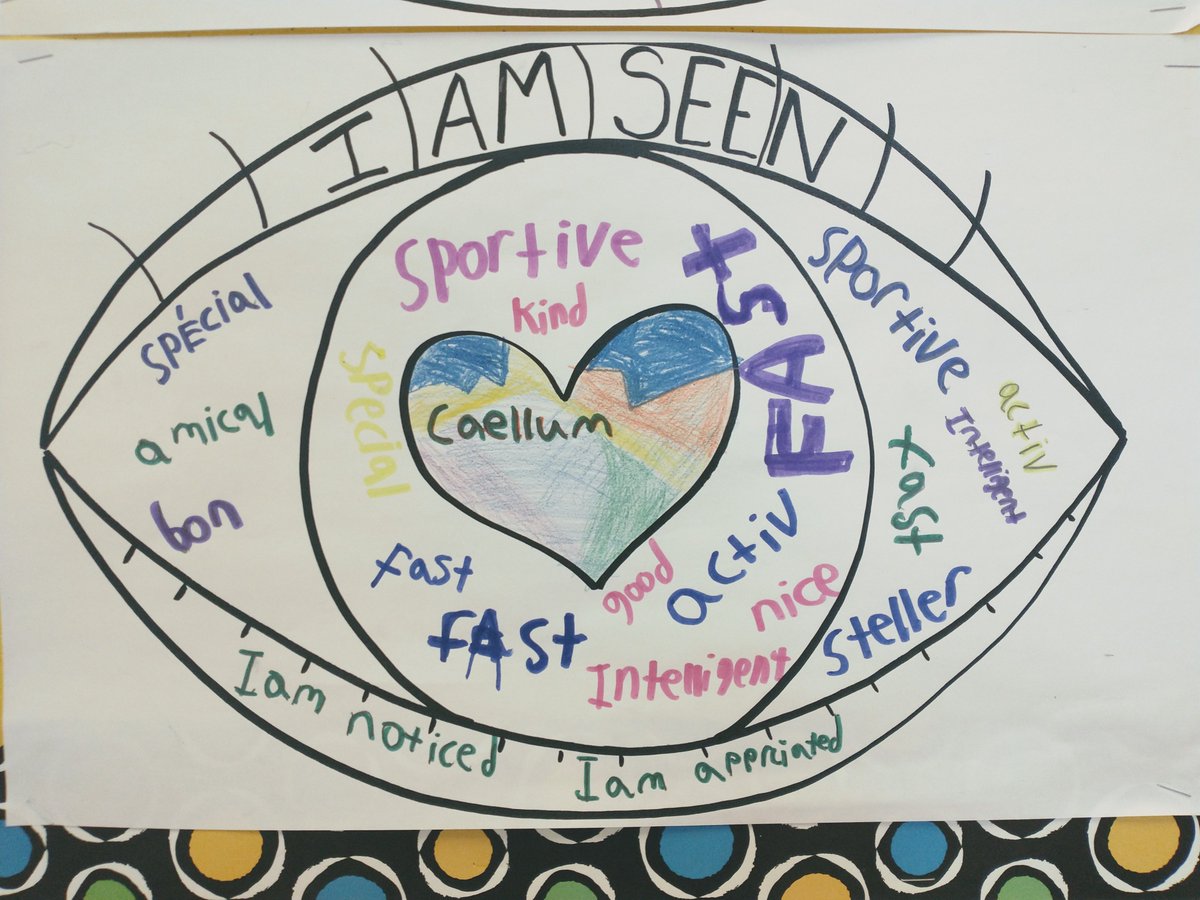 I AM SEEN
spécial
amical
bon
sportive
kind
special
Caellum
FAst
fast
fAst
good
activ
nice
Intelligent
sportive
activ
Intelligent
fast
steller
I am noticed
I am apprciated